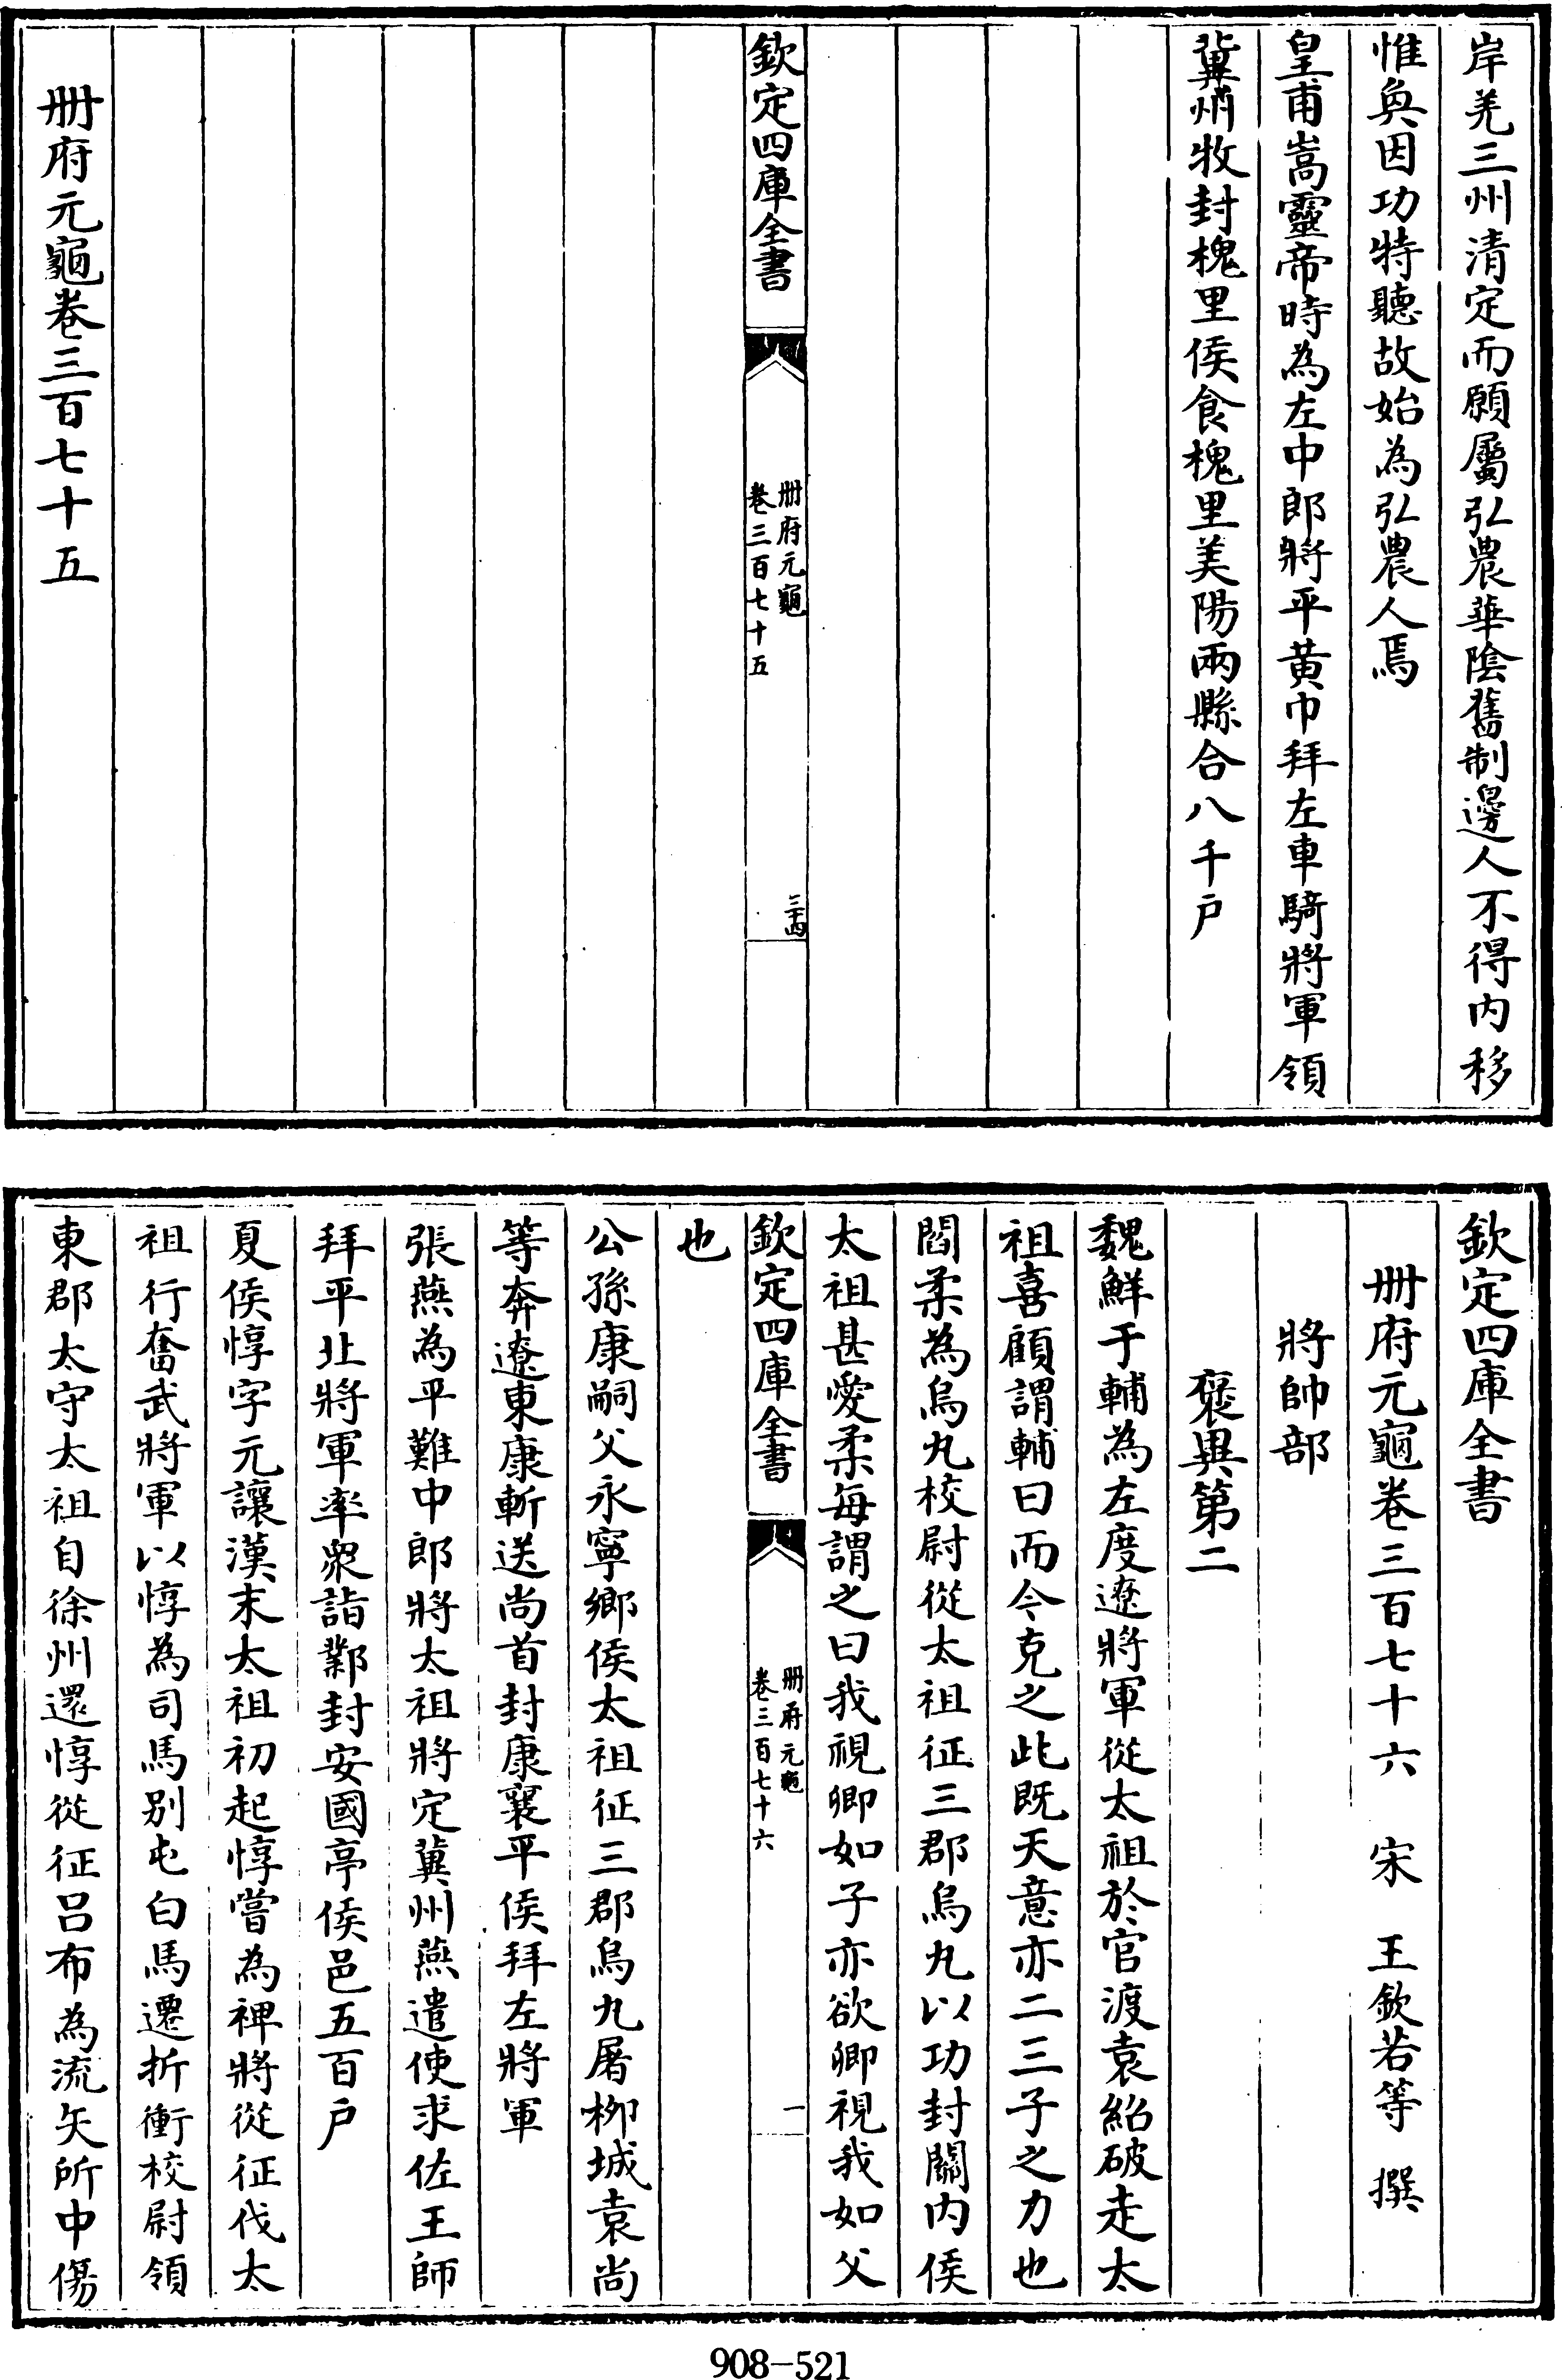 岸羌三州清定而願屬弘農華陰舊制邊人不得内移
惟奐因功特聽故始為弘農人焉
皇甫嵩靈帝時為左中郎將平黄巾拜左車騎將軍領
冀州牧封槐里侯食槐里美陽兩縣合八千户
欽定四庫全書
册府元龜
卷三百七十五
三十四
册府元龜卷三百七十五
欽定四庫全書
册府元龜卷三百七十六 宋 王欽若等 撰
將帥部
褒異第二
魏鮮于輔為左度遼將軍從太祖於官渡袁紹破走太
祖喜顧謂輔曰而今克之此既天意亦二三子之力也
閻柔為烏丸校尉從太祖征三郡烏丸以功封關内侯
太祖甚愛柔每謂之曰我視卿如子亦欲卿視我如父
欽定四庫全書
册府元龜
卷三百七十六
一
也
公孫康嗣父永寧鄉侯太祖征三郡烏丸屠柳城袁尚
等奔遼東康斬送尚首封康襄平侯拜左將軍
張燕為平難中郎將太祖將定冀州燕遣使求佐王師
拜平北將軍率衆詣鄴封安國亭侯邑五百户
夏侯惇字元讓漢末太祖初起惇嘗為裨將從征伐太
祖行奮武將軍以惇為司馬别屯白馬遷折衝校尉領
東郡太守太祖自徐州還惇從征吕布為流矢所中傷
908-521